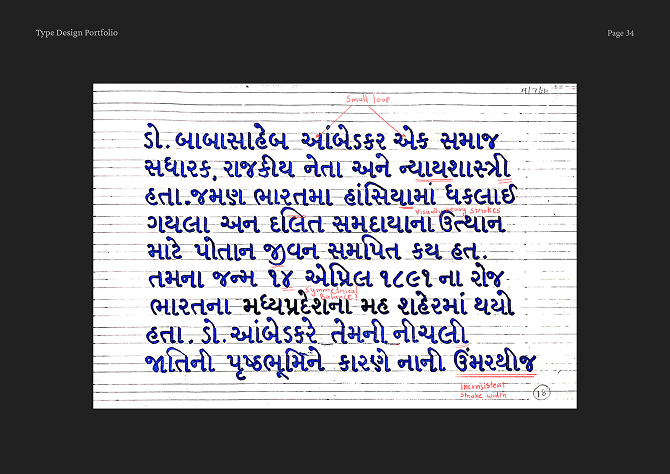 Type Design Portfolio
Page 34
Small loop
ડો. બાબાસાહેબ આંબેડકર એક સમાજ
સધારક, રાજકીય નેતા અને ન્યાયશાસ્ત્રી
હતા. જમણ ભારતમા હાંસિયામાં ધકલાઈ
Visually heavy strokes
ગયલા અન દલિત સમદાયાના ઉત્થાન
માટે પોતાન જીવન સમપિત કય હત.
તમના જન્મ ૧૪ એપ્રિલ ૧૮૯૧ ના રોજ
Symmetrical
Balance
ભારતના મધ્યપ્રદેશના મહ શહેરમાં થયો
હતા. ડો. આંબેડકરે તેમની નીચલી
જાતિની પૃષ્ઠભૂમિને કારણે નાની ઉંમરથીજ
inconsistent
stroke width
18